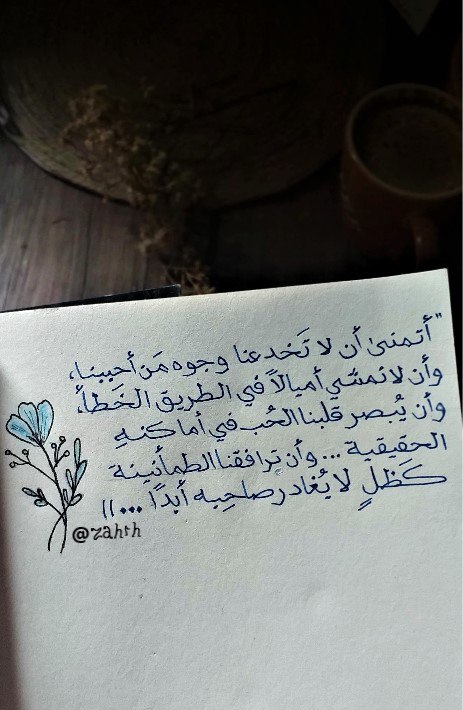 "أتمنىٰ أن لا تَخدعنا وجوه مَن أحببنا،
وأن لا نمشي أميالاً في الطريق الخَطأ،
وأن يُبصر قلبنا الحُب في أماكنهِ
الحقيقية ... وأن ترافقنا الطمأنينة
كَظلٍ لا يُغادر صاحِبه أبدًا ..."
@zahrh